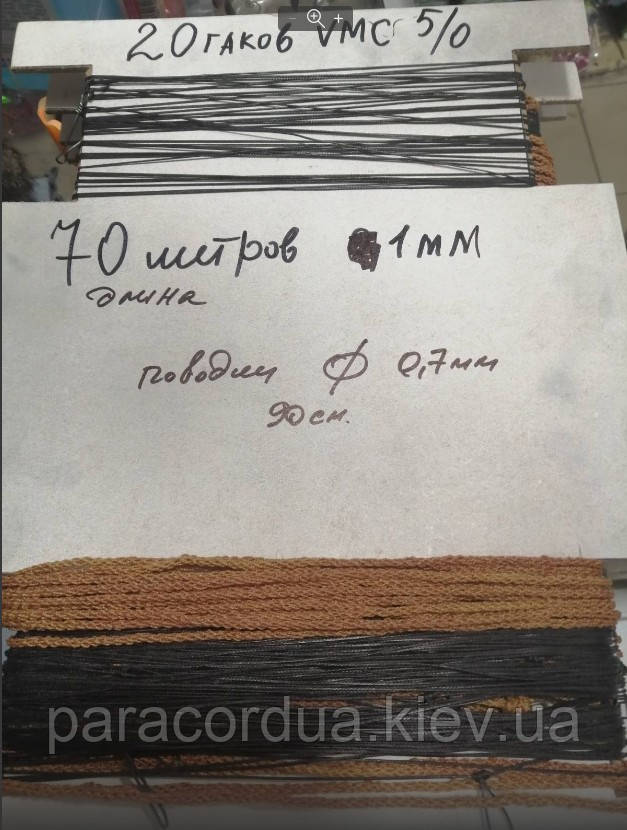 20 гаков VMC 5/0
70 метров 1мм
длина
поводки Ф 0,7мм
90см.
paracordua.kiev.ua